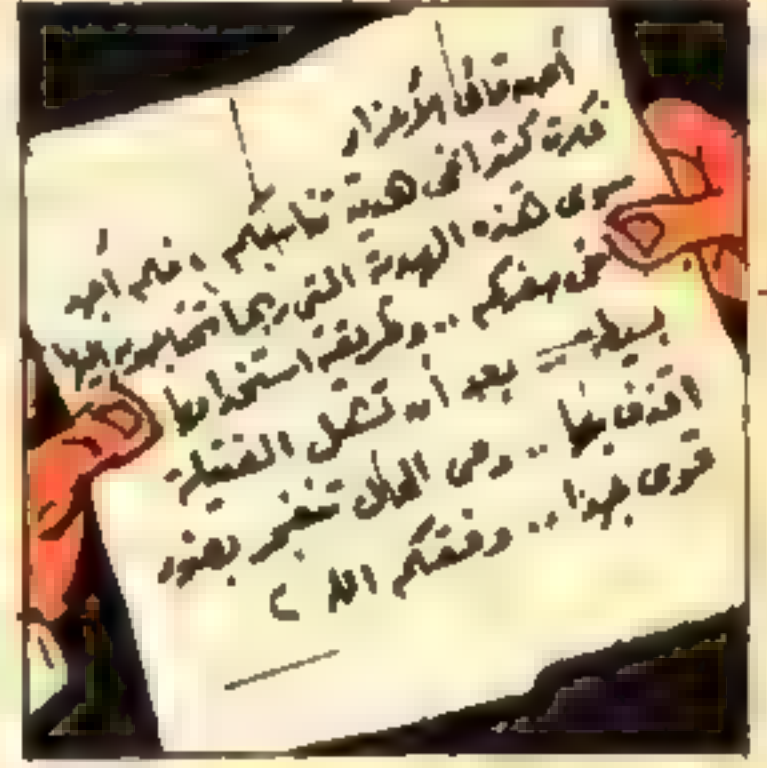 أصدقائي الأعزاء
فكرت كثيرا في هدية تناسبكم ، فلم أجد
سوى هذه الهدية التي ربما تحتاجون إليها
في سفركم .. وطريقة استخدامها
بسيطة بعد أن تشعل الفتيلة
اقذف بها .. وفي الحال تنفجر بضوء
قوي جدا .. وفقكم الله